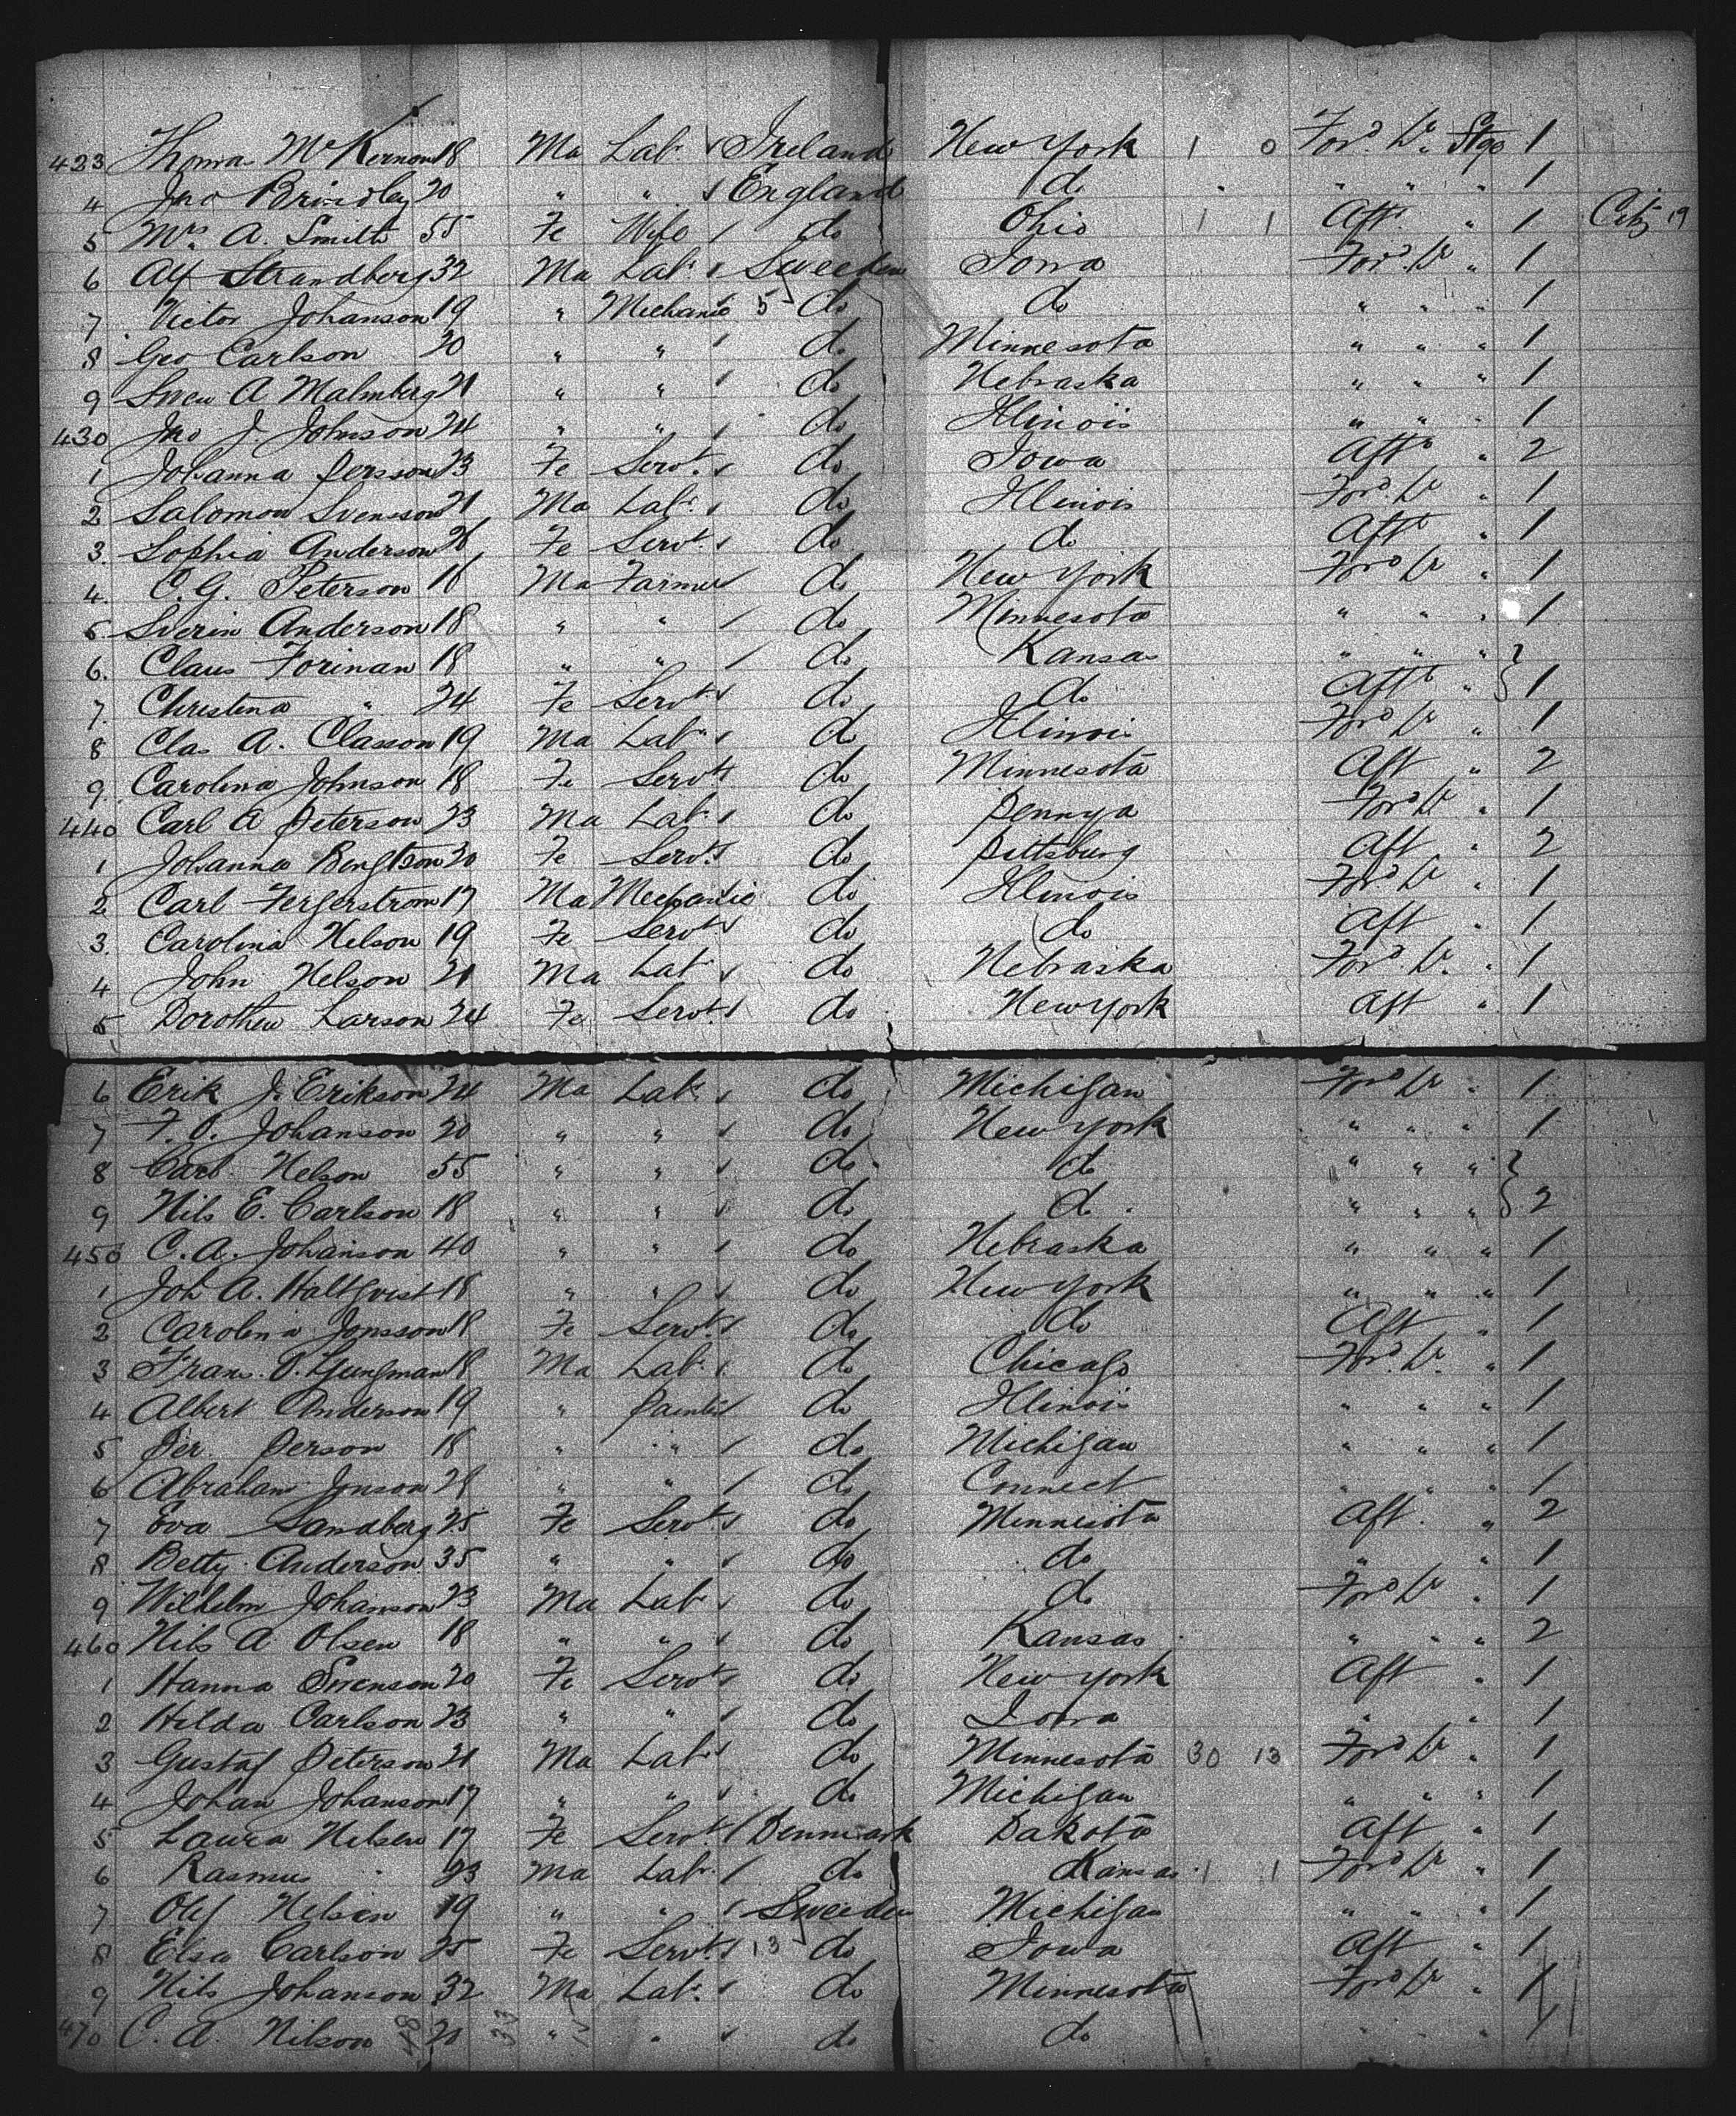 423 Thomas McKernon 18 Ma Labr Ireland New York 1 0 Ford Dk Stge 1
4 Jno Brindley 20 " " England do " " " " 1
5 Mrs A. Smith 55 Fe Wife do Ohio 1 1 Aft " 1 Citz 19
6 Alf Strandberg 32 Ma Labr Sweden Iowa Ford Dk " 1
7 Victor Johanson 19 " Mechanic 5 do do " " " 1
8 Geo Carlson 20 " " do Minnesota " " " 1
9 Sven A Malmberg 21 " " do Nebraska " " " 1
430 Jno J. Johnson 24 " " do Illinois " " " 1
1 Johanna Persson 23 Fe Servt do Iowa Aft " 2
2 Salomon Svensson 21 Ma Labr do Illinois Ford Dk " 1
3. Sophia Anderson 26 Fe Servt do do Aft " 1
4. C. G. Peterson 18 Ma Farmer do New York Ford Dk " 1
5 Sverin Anderson 18 " " do Minnesota " " " 1
6. Claus Forinan 18 " " do Kansas " " "
7. Christina " 24 Fe Servt do do Aft " 1
8 Clas A. Classon 19 Ma Labr do Illinois Ford Dk " 1
9. Carolina Johnson 18 Fe Servt do Minnesota Aft " 2
440 Carl A Peterson 23 Ma Labr do Pennya Ford Dk " 1
1 Johanna Bengtson 20 Fe Servt do Pittsburg Aft " 2
2 Carl Fergerstrom 17 Ma Mechanic do Illinois Ford Dk " 1
3. Carolina Nelson 19 Fe Servt do do Aft " 1
4 John Nelson 21 Ma Labr do Nebraska Ford Dk " 1
5 Dorothea Larson 24 Fe Servt do New York Aft " 1
6 Erik J. Erikson 24 Ma Labr do Michigan Ford Dk " 1
7 F. O. Johanson 20 " " do New York " " " 1
8 Carl Nelson 55 " " do do " " "
9 Nils E. Carlson 18 " " do do " " " 2
450 C. A. Johanson 40 " " do Nebraska " " " 1
1 Joh A. Haltqvist 18 " " do New York " " " 1
2 Carolina Jonsson 18 Fe Servt do do Aft " 1
3 Frans. O. Ljungman 18 Ma Labr do Chicago Ford Dk " 1
4 Albert Anderson 19 " Painter do Illinois " " " 1
5 Per Person 18 " " do Michigan " " " 1
6 Abraham Jonson 28 " " do Connect " " " 1
7 Eva Sandberg 25 Fe Servt do Minnesota Aft " 2
8 Betty Anderson 35 " " do do " " 1
9 Wilhelm Johanson 23 Ma Labr do do Ford Dk " 1
460 Nils A Olsen 18 " " do Kansas " " " 2
1 Hanna Swenson 20 Fe Servt do New York Aft " 1
2 Hilda Carlson 23 " " do Iowa " " 1
3 Gustaf Peterson 21 Ma Labr do Minnesota 30 13 Ford Dk " 1
4 Johan Johanson 17 " " do Michigan " " " 1
5 Laura Nelsen 17 Fe Servt Denmark Dakota Aft " 1
6 Rasmus " 23 Ma Labr do Kansas 1 1 Ford Dk " 1
7 Olef Nelsen 19 " " Sweden Michigan " " " 1
8 Elsa Carlson 25 Fe Servt 13 do Iowa Aft " 1
9 Nils Johanson 32 Ma Labr do Minnesota Ford Dk " 1
470 C. A. Nilson 20 " " do do " " " 1